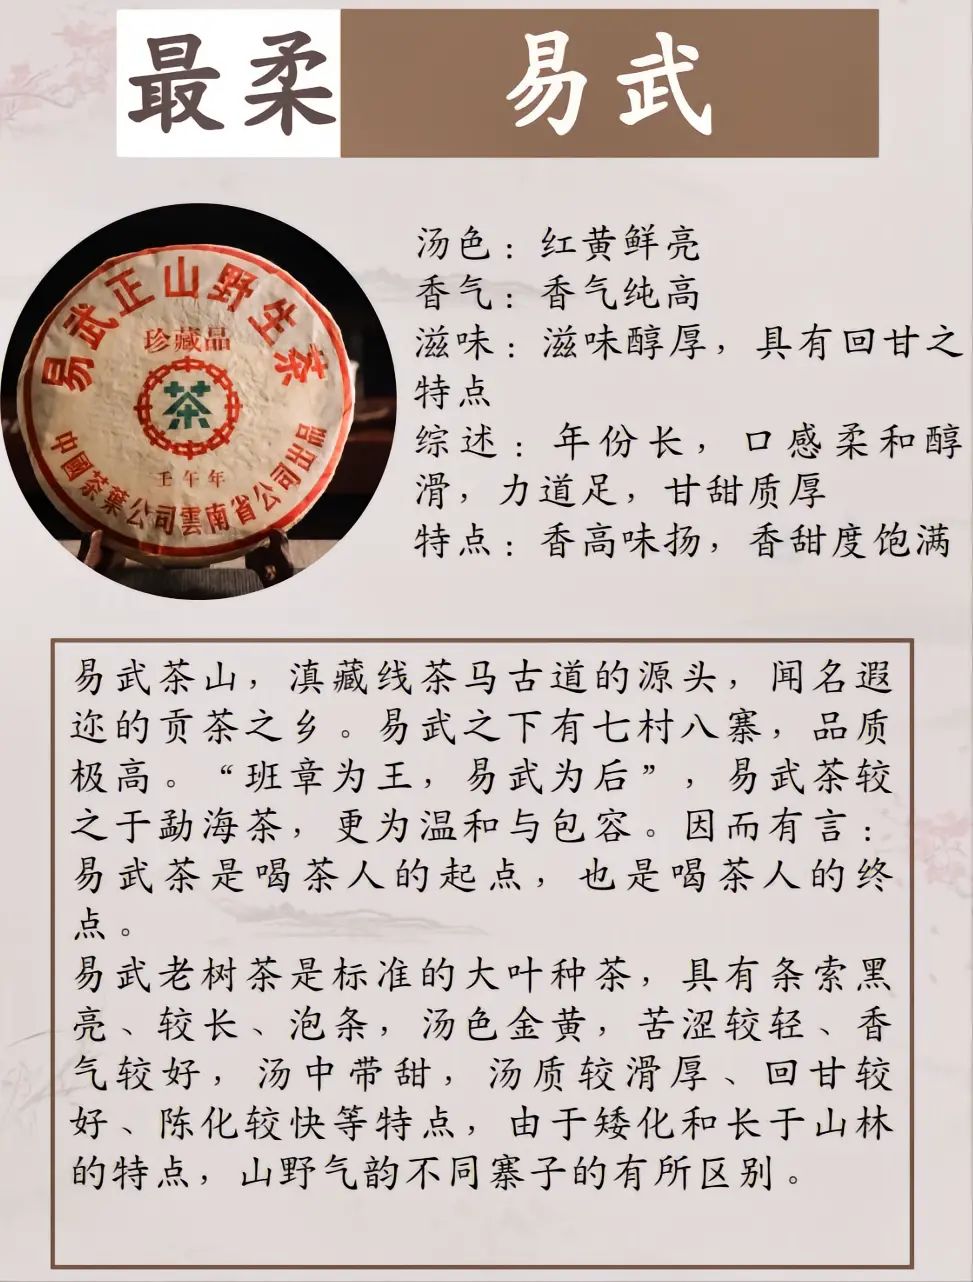 最柔 易武
易武正山野生茶
珍藏品
茶
壬午年
中國茶葉公司雲南省公司出品
汤色：红黄鲜亮
香气：香气纯高
滋味：滋味醇厚，具有回甘之
特点
综述：年份长，口感柔和醇
滑，力道足，甘甜质厚
特点：香高味扬，香甜度饱满
易武茶山，滇藏线茶马古道的源头，闻名遐
迩的贡茶之乡。易武之下有七村八寨，品质
极高。“班章为王，易武为后”，易武茶较
之于勐海茶，更为温和与包容。因而有言：
易武茶是喝茶人的起点，也是喝茶人的终
点。
易武老树茶是标准的大叶种茶，具有条索黑
亮、较长、泡条，汤色金黄，苦涩较轻、香
气较好，汤中带甜，汤质较滑厚、回甘较
好、陈化较快等特点，由于矮化和长于山林
的特点，山野气韵不同寨子的有所区别。